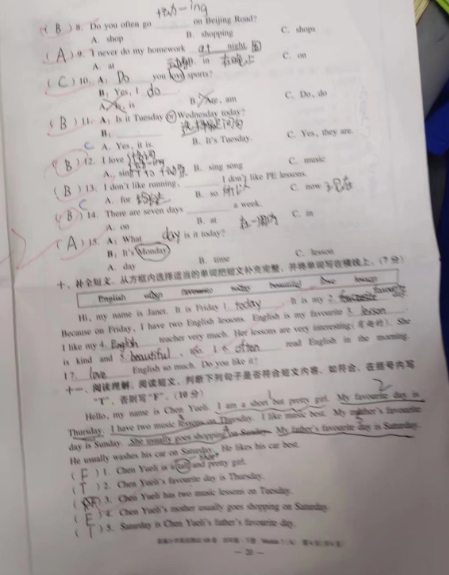 (B) 8. Do you often go ____ on Beijing Road?
A. shop B. shopping C. shops
(A) 9. I never do my homework at night.
A. at B. in C. on
(C) 10. A: Do you sports?
B: Yes, I do
A. is B. am C. Do, do
(B) 11. A: Is it Tuesday or Wednesday today?
B:
C A. Yes, it is. B. It's Tuesday. C. Yes, they are.
(B) 12. I love
A. B. sing song C. music
(B) 13. I don't like running, ____ I don't like PE lessons.
A. for B. so 所以 C. now 现在
(B) 14. There are seven days ____ a week.
C A. on B. at C. in
(A) 15. A: What day is it today?
B: It's Monday.
A. day B. time C. lesson
十、补全短文。从方框内选择适当的单词把短文补充完整，并将单词写在横线上。(7分)
English today favourite often beautiful love lesson
Hi, my name is Janet. It is Friday 1. today. It is my 2. favourite day.
Because on Friday, I have two English lessons. English is my favourite 3. lesson.
I like my 4. English teacher very much. Her lessons are very interesting(有趣的). She
is kind and 5. beautiful. 6. often read English in the morning.
I 7. love English so much. Do you like it?
十一、阅读理解。阅读短文，判断下列句子是否符合短文内容，如符合，在括号内写
"T"，否则写"F"。(10分)
Hello, my name is Chen Yueli. I am a short but pretty girl. My favourite day is
Thursday. I have two music lessons on Thursday. I like music best. My mother's favourite
day is Sunday. She usually goes shopping on Sunday. My father's favourite day is Saturday.
He usually washes his car on Saturday. He likes his car best.
(F) 1. Chen Yueli is a tall and pretty girl.
(T) 2. Chen Yueli's favourite day is Thursday.
(F) 3. Chen Yueli has two music lessons on Tuesday.
(F) 4. Chen Yueli's mother usually goes shopping on Saturday.
(T) 5. Saturday is Chen Yueli's father's favourite day.
— 20 —